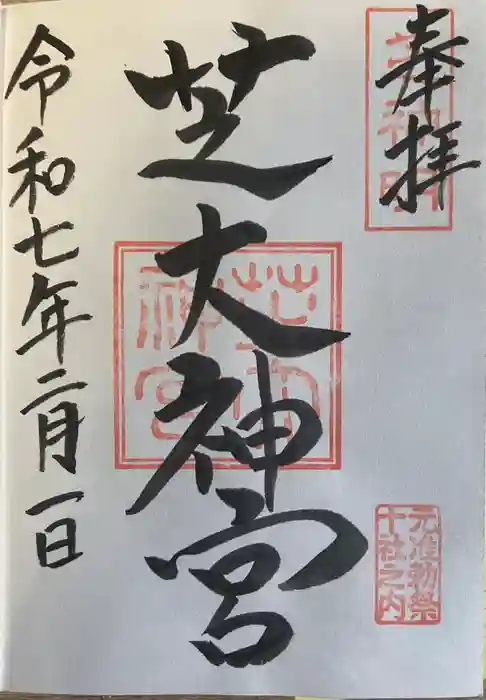 奉拝
芝神明
芝大神宮
芝大神宮
元准勅祭
十社之内
令和七年二月一日